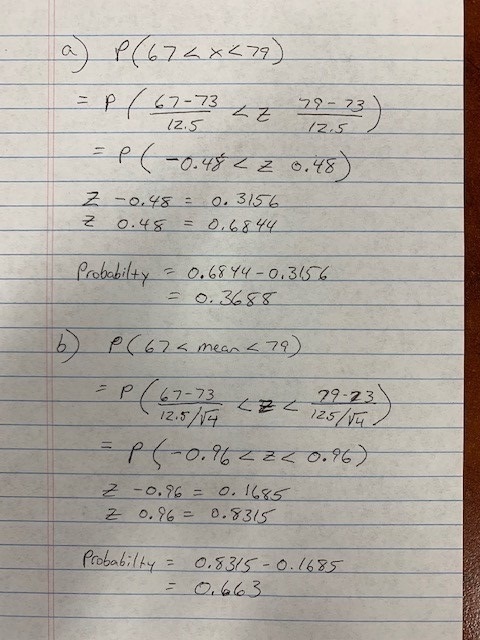 a) P(67 < x < 79)
= P ( 67-73 / 12.5 < z 79-73 / 12.5 )
= P ( -0.48 < z 0.48 )
Z -0.48 = 0.3156
Z 0.48 = 0.6844
Probabilty = 0.6844 - 0.3156
= 0.3688
b) P(67 < mean < 79)
= P ( 67-73 / 12.5/√4 < z < 79-73 / 12.5/√4 )
= P (-0.96 < z < 0.96)
Z -0.96 = 0.1685
Z 0.96 = 0.8315
Probabilty = 0.8315 - 0.1685
= 0.663